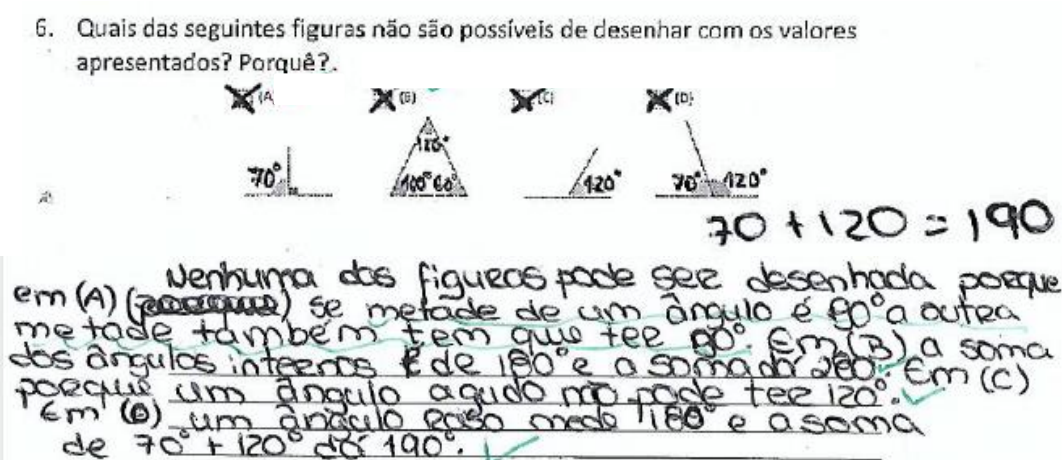 6. Quais das seguintes figuras não são possíveis de desenhar com os valores
apresentados? Porquê?.
(A (B) (C) (D)
70° 120° 100° 60° 120° 70° 120°
70 + 120 = 190
Nenhuma das figuras pode ser desenhada porque
em (A) se metade de um ângulo é 90° a outra
metade também tem que ter 90°. Em (B) a soma
dos ângulos internos é de 180° e a soma dá 280. Em (C)
porque um ângulo agudo não pode ter 120°.
Em (D) um ângulo raso mede 180° e a soma
de 70° + 120° dá 190°.